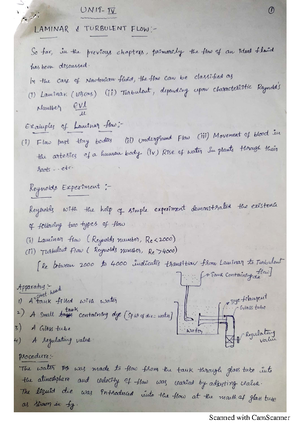 UNIT-IV
①
LAMINAR & TURBULENT FLOW:-
So far, in the previous chapters, primarily the flow of an ideal fluid
has been discussed.
In the case of Newtonian fluid, the flow can be classified as
(i) Laminar (viscous) (ii) Turbulent, depending upon characteristic Reynold's
Number ρVl/μ
Examples of Laminar flow:-
(i) Flow past tiny bodies (ii) Underground Flow (iii) Movement of blood in
the arteries of a human body (iv) Rise of water in plants through their
roots ... etc.
Reynolds Experiment:-
Reynolds with the help of simple experiment demonstrated the existence
of following two types of flow
(i) Laminar flow (Reynolds number, Re<2000)
(ii) Turbulent Flow (Reynolds number, Re >4000)
[Re between 2000 to 4000 indicates transition from Laminar to Turbulent
flow]
Tank containing dye
Apparatus:-
1) A tank filled with water
2) A small tank containing dye
3) A Glass tube
4) A regulating valve
Dye filament
Glass tube
Regulating
valve
Water
Procedure:-
The water was made to flow from the tank through glass tube into
the atmosphere and velocity of flow was varied by adjusting valve.
The liquid dye was introduced into the flow at the mouth of glass tube
as shown in fig.
Scanned with CamScanner